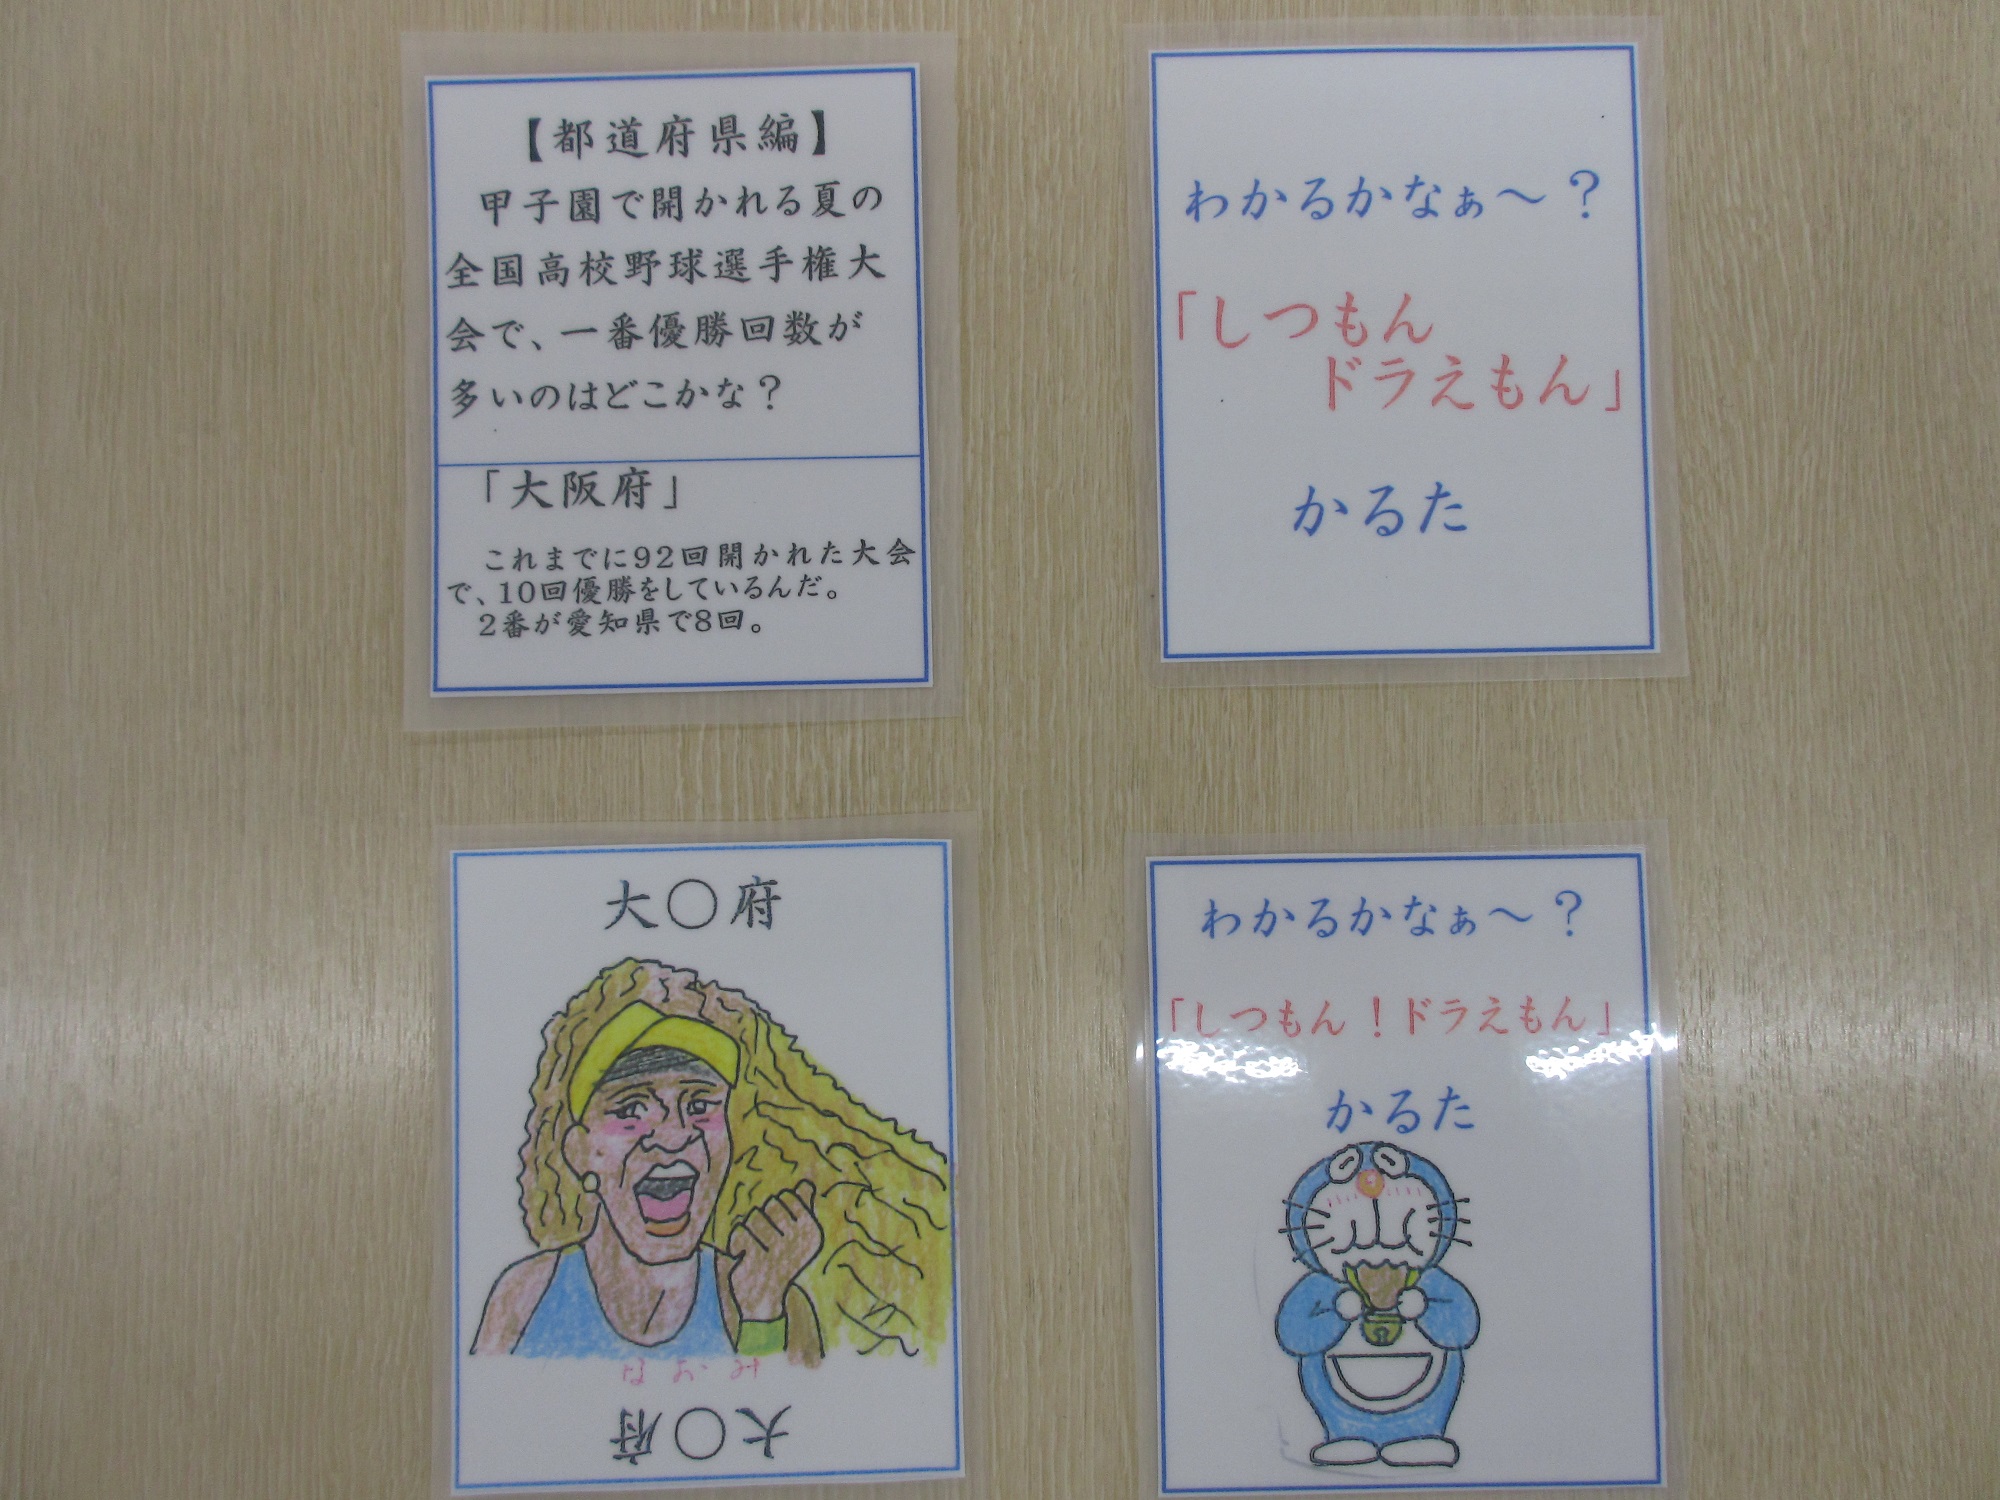 【都道府県編】
甲子園で開かれる夏の
全国高校野球選手権大
会で、一番優勝回数が
多いのはどこかな？
「大阪府」
これまでに92回開かれた大会
で、10回優勝をしているんだ。
2番が愛知県で8回。
わかるかなぁ～？
「しつもん
ドラえもん」
かるた
大〇府
なおみ
大〇府
わかるかなぁ～？
「しつもん！ドラえもん」
かるた